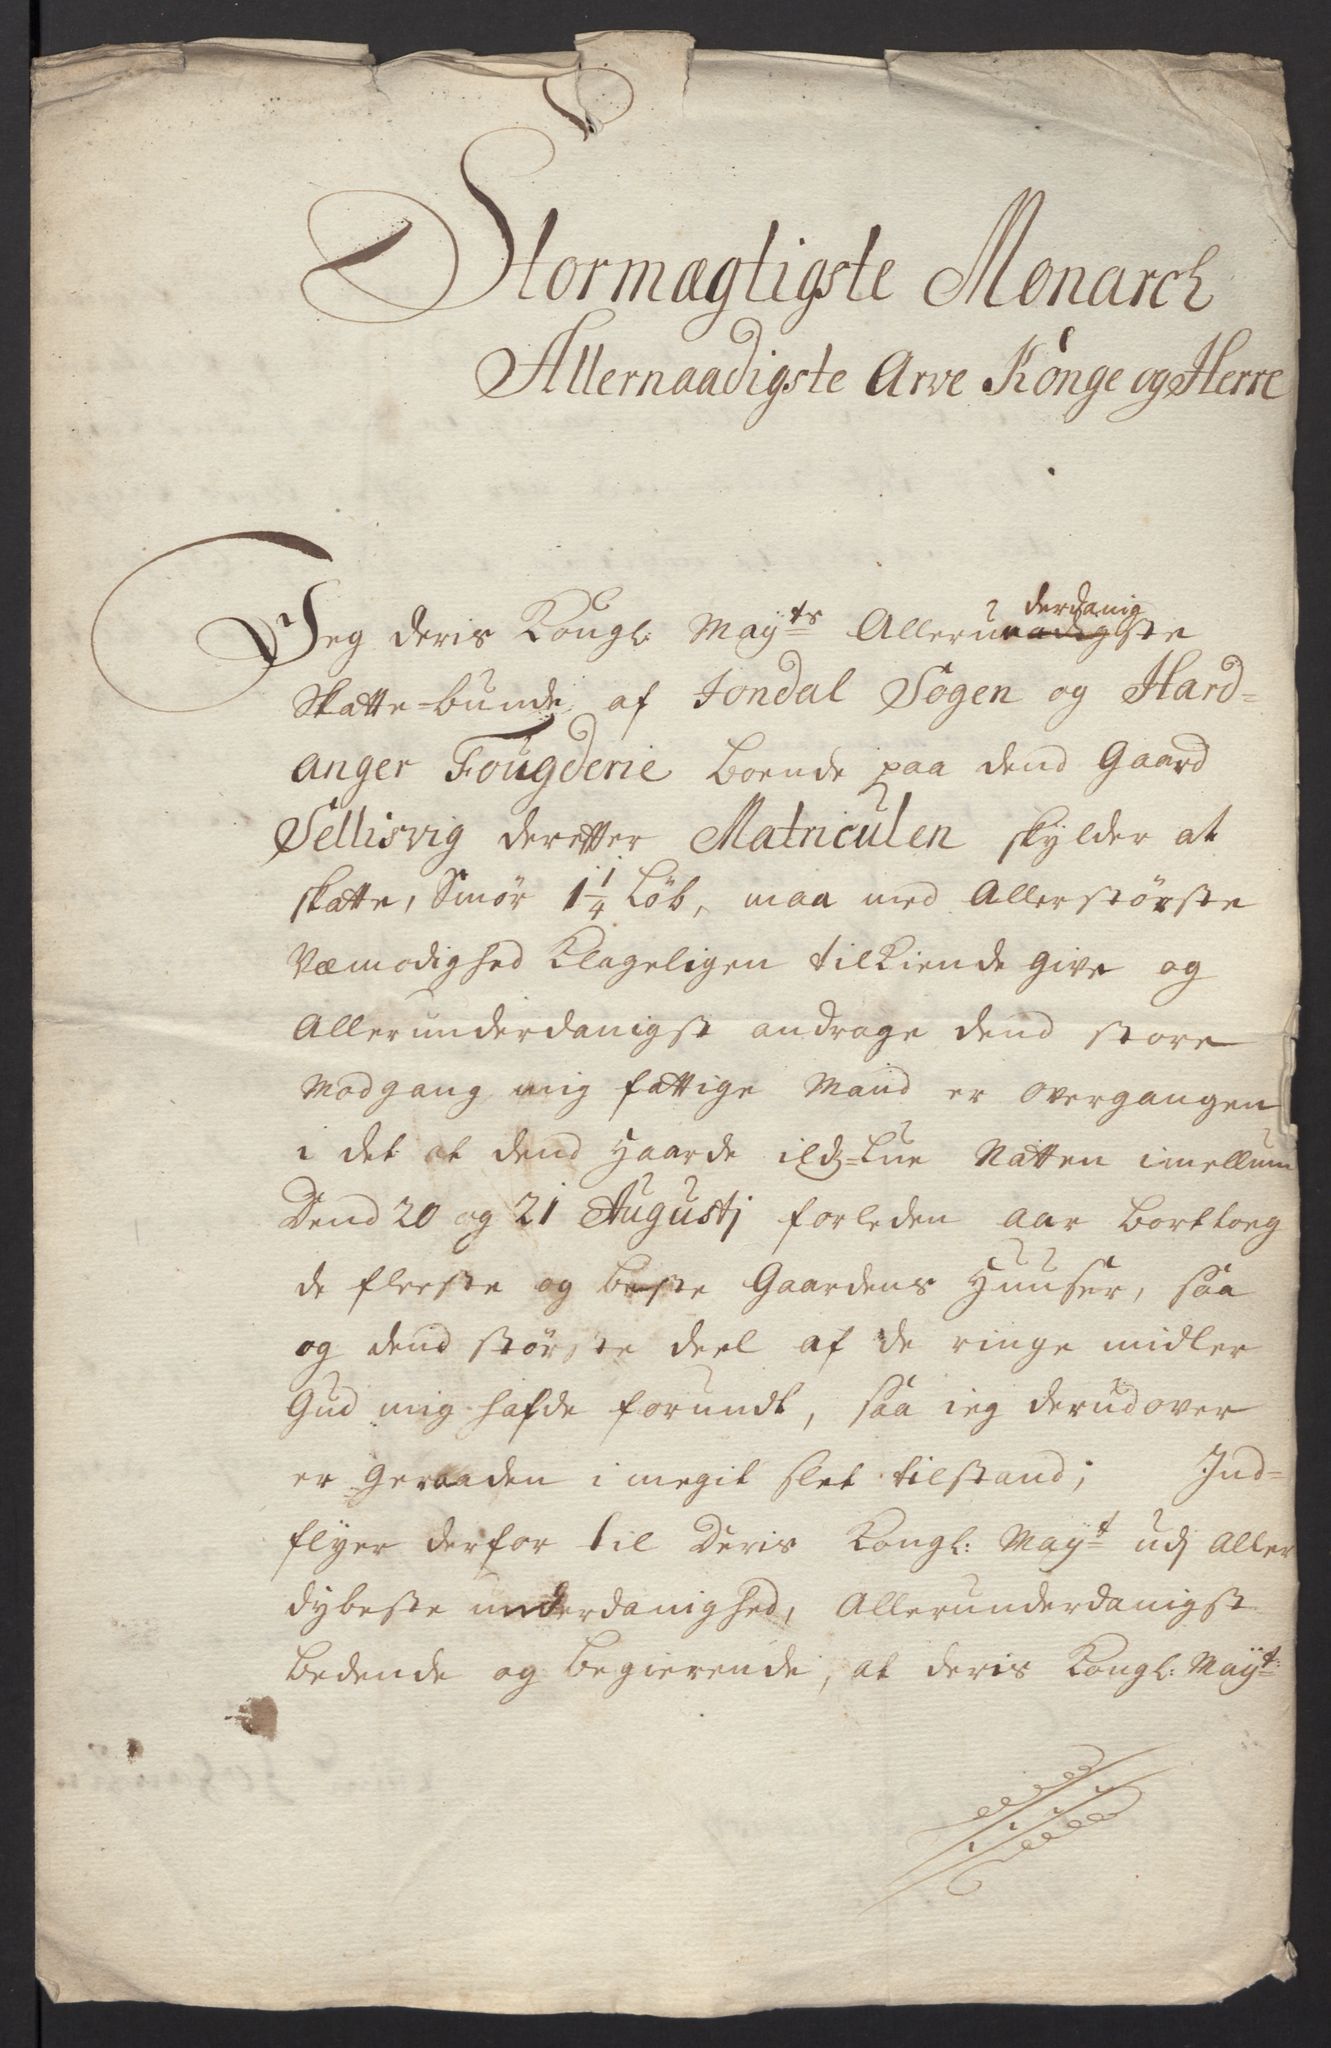 Stormægtigste Monarch
Allernaadigste Arve Konge og Herre
derdanig
Jeg deris Kongl: Mayts Allerunadigste
Skatte-bunde af Jondal Sogen og Hard-
anger Fougderie boende paa dend Gaard
Sellisvig derefter Matriculen skylder at
skatte, Smør 1 1/4 Løb, maa med Allerstörste
Væmodighed Klageligen tilkiende give og
Allerunderdanigst andrage dend store
Modgang mig fattige Mand er overgangen
i det at dend haarde ilds-lue Natten imellum
Dend 20 og 21 Augustj forleden aar borttoeg
de fleeste og beste Gaardens Huuser, saa
og dend störste deel af de ringe midler
Gud mig hafde forundt, saa ieg derudover
er geraaden i megit slet tilstand; Ind-
flyer derfor til Deris Kongl: Mayt udj Aller
dybeste underdanighed, Allerunderdanigst
bedende og begierende, at deris Kongl: Mayt: